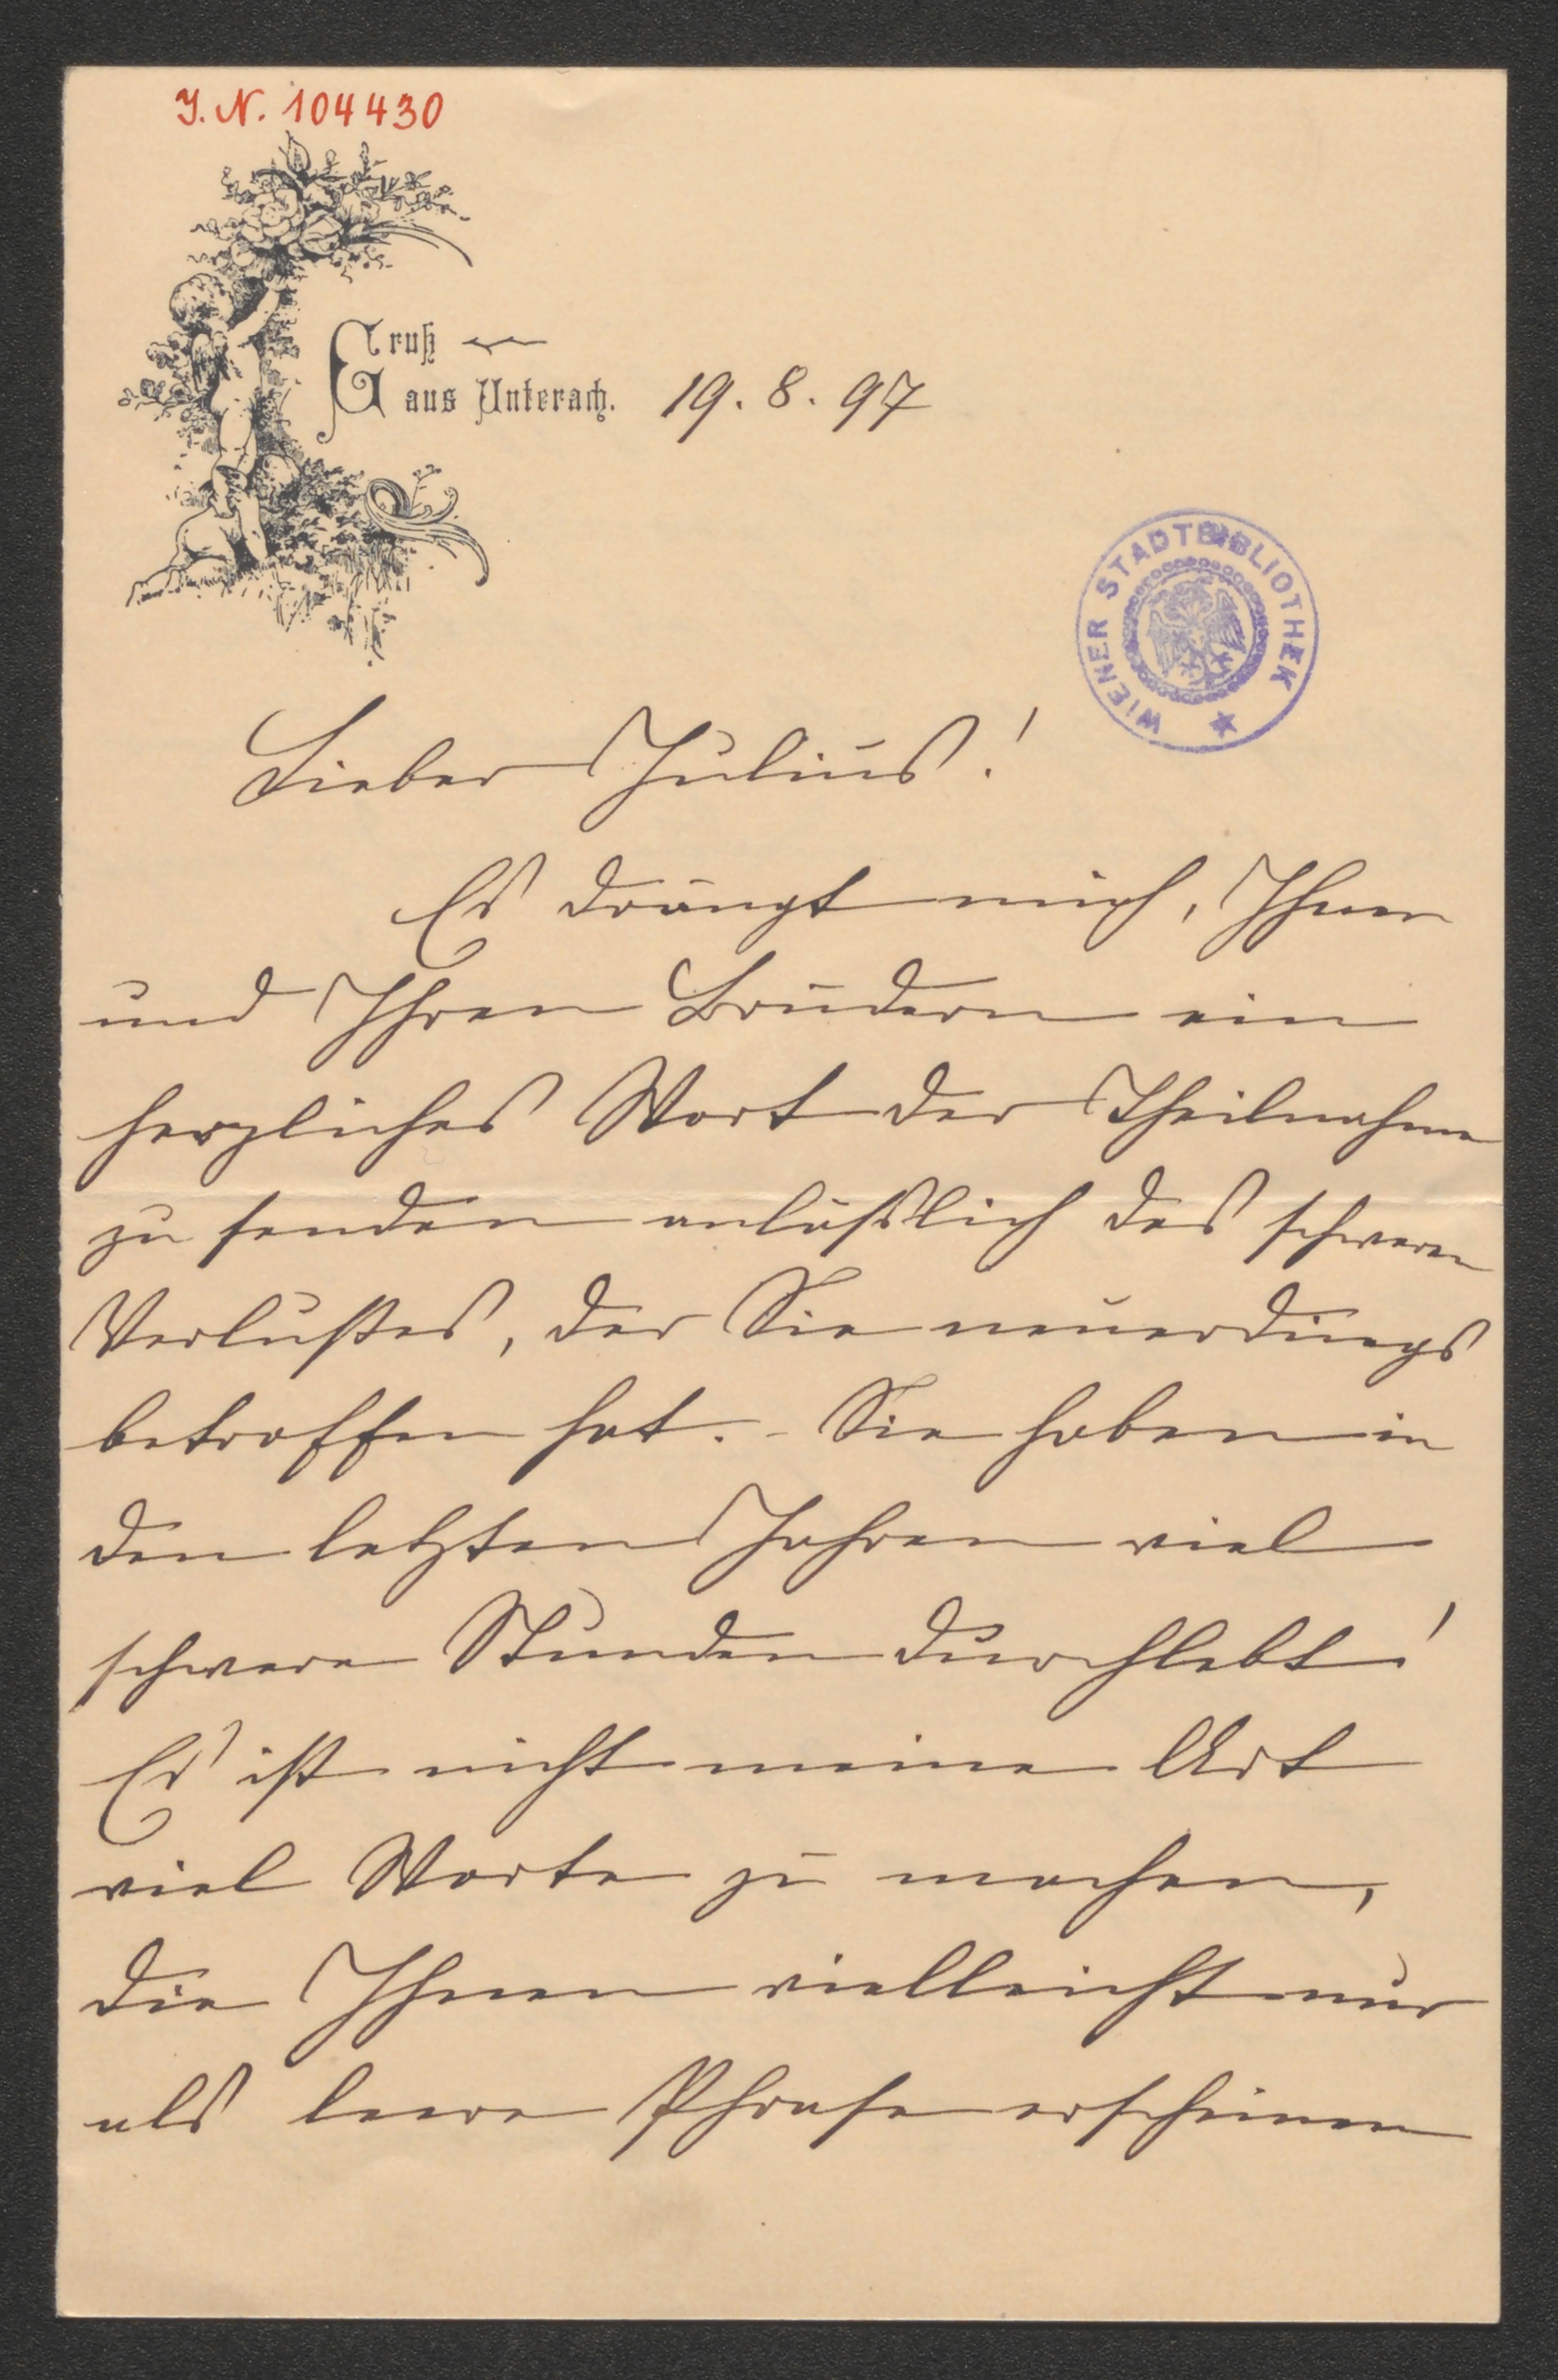 J. N. 104430
Gruß
aus Unterach. 19. 8. 97
WIENER STADTBIBLIOTHEK
Lieber Julius!
Es drängt mich, Ihnen
und Ihren Brüdern ein
herzliches Wort der Theilnahme
zu senden anläßlich des schweren
Verlustes, der Sie neuerdings
betroffen hat. - Sie haben in
den letzten Jahren viel
schwere Stunden durchlebt!
Es ist nicht meine Art
viel Worte zu machen,
die Ihnen vielleicht nur
als leere Phrase erscheinen